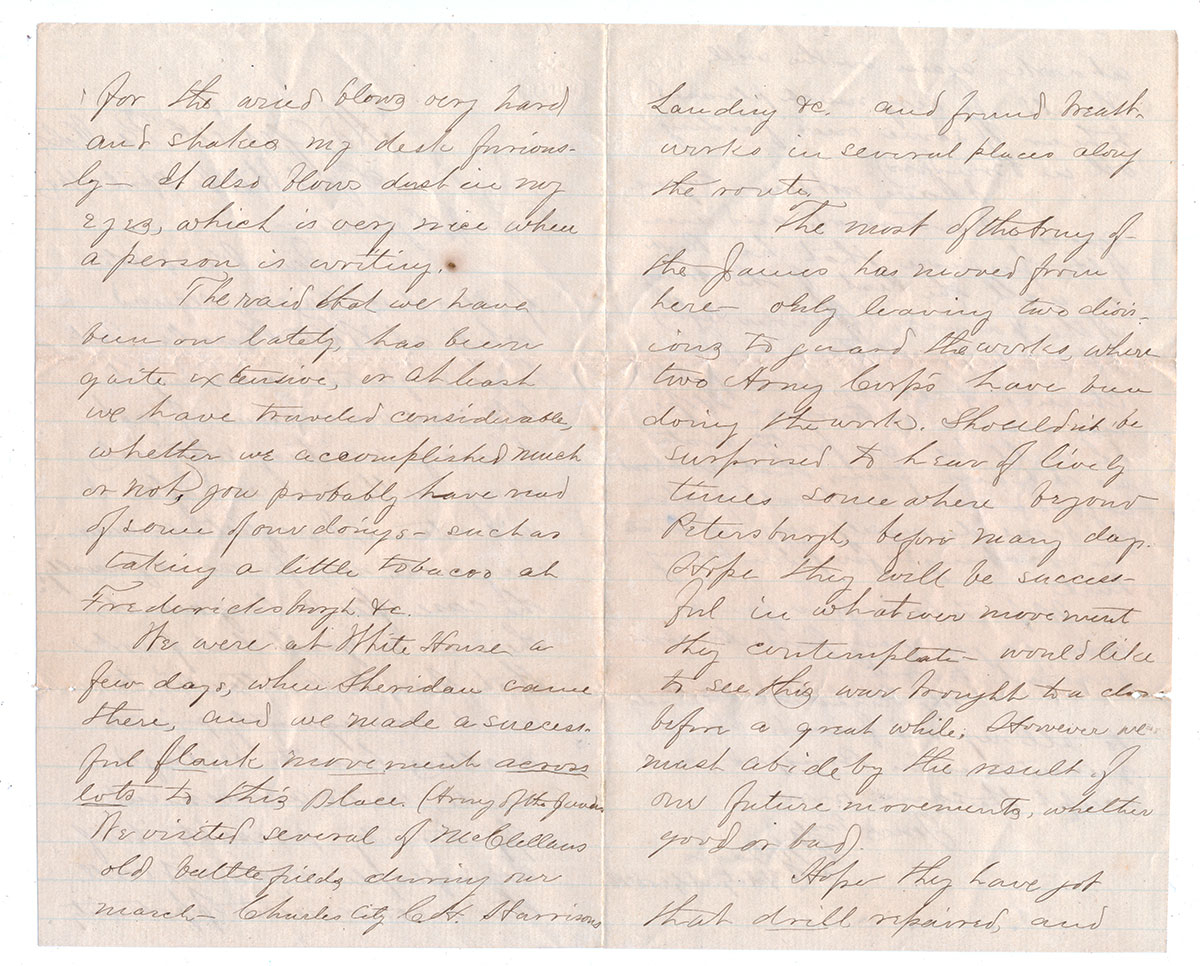 for the wind blows very hard
and shakes my desk furious-
ly- It also blows dust in my
eyes, which is very nice when
a person is writing.
The raid that we have
been on lately, has been
quite extensive, or at least
we have traveled considerable,
whether we accomplished much
or not, you probably have read
of some of our doings- such as
taking a little tobacco at
Fredericksburgh &c.
We were at White House a
few days, when Sheridan came
there, and we made a success-
ful flank movement across
lots to this place (Army of the James
We visited several of McClellans
old battlefields during our
march- Charles City C.H. Harrisons
Landing &c. and found breast-
works in several places along
the route.
The most of the Army of
the James has moved from
here- only leaving two divis-
ions to guard the works, where
two Army Corps have been
doing the work. Shouldnt be
surprised to hear of lively
times somewhere beyond
Petersburgh, before many days.
Hope they will be success-
ful in whatever movement
they contemplate- would like
to see this war brought to a close
before a great while. However we
must abide by the result of
our future movements, whether
good or bad.
Hope they have got
that drill repaired, and